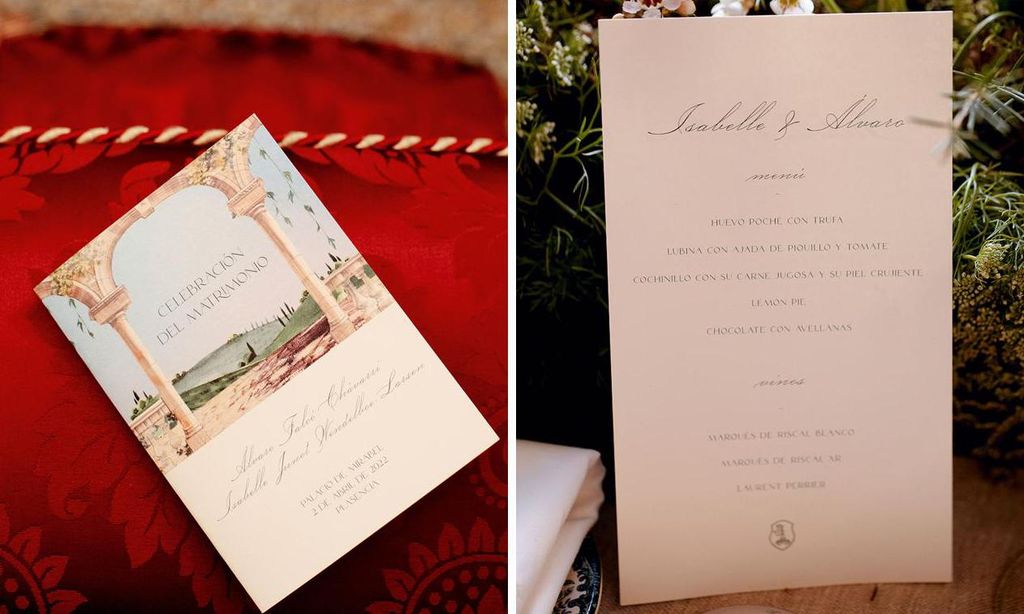 CELEBRACIÓN
DEL MATRIMONIO
Alvaro Falcó Chávarri
Isabelle Junot Wendelboe-Larsen
PALACIO DE MIRABEL
2 DE ABRIL DE 2022
PLASENCIA
Isabelle & Álvaro
menú
HUEVO POCHÉ CON TRUFA
LUBINA CON AJADA DE PIQUILLO Y TOMATE
COCHINILLO CON SU CARNE JUGOSA Y SU PIEL CRUJIENTE
LEMON PIE
CHOCOLATE CON AVELLANAS
vinos
MARQUÉS DE RISCAL BLANCO
MARQUÉS DE RISCAL XR
LAURENT PERRIER